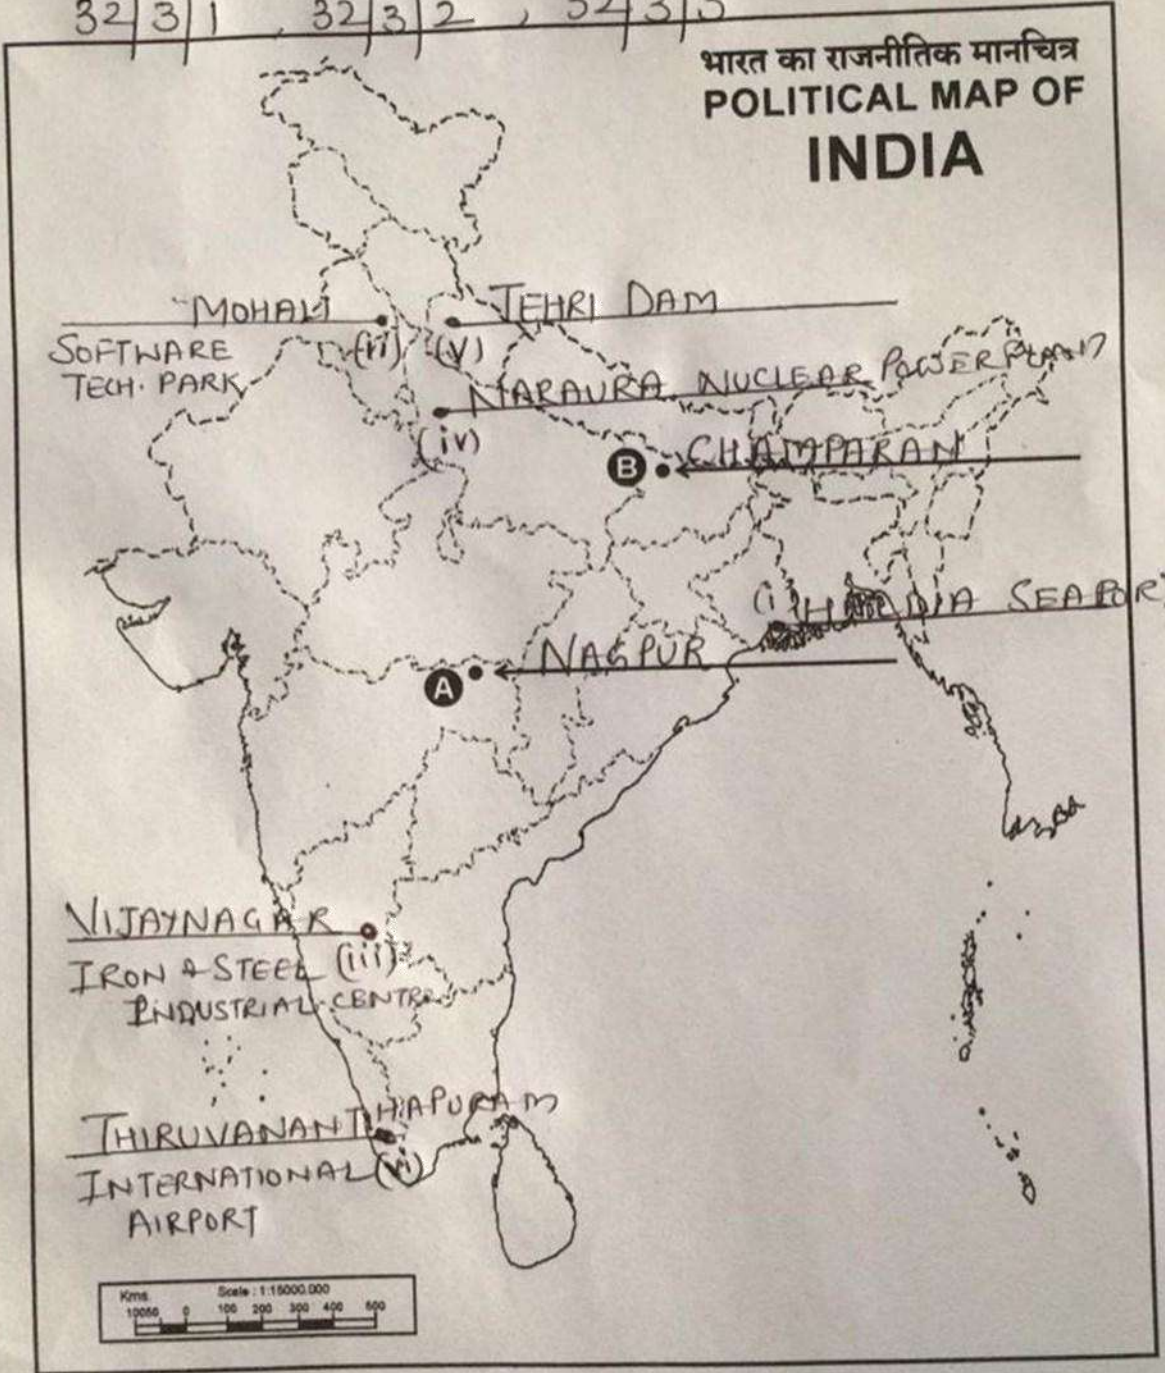 32/3/1 , 32/3/2 , 32/3/3
भारत का राजनीतिक मानचित्र
POLITICAL MAP OF
INDIA
MOHALI
SOFTWARE
TECH. PARK
(ii)
TEHRI DAM
(v)
NARAURA NUCLEAR POWER PLANT
(iv)
B
CHAMPARAN
(i) HALDIA SEAPORT
A
NAGPUR
VIJAYNAGAR
IRON & STEEL (iii)
INDUSTRIAL CENTRE
THIRUVANANTHAPURAM
INTERNATIONAL (vi)
AIRPORT
Kms.
Scale : 1:15000.000
10050 0 100 200 300 400 500